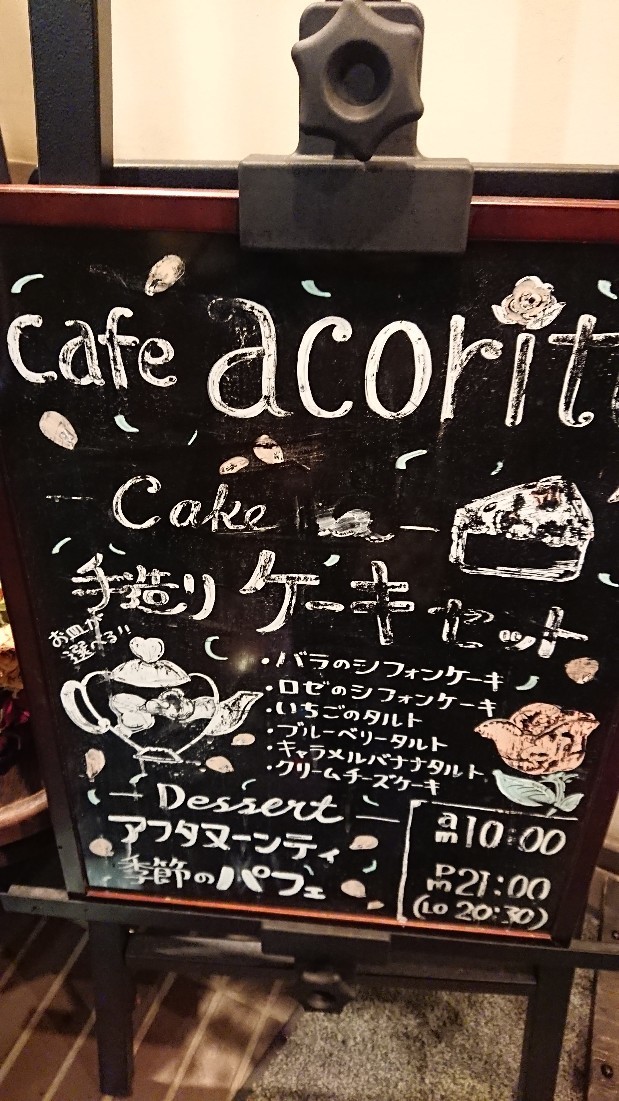 cafe acorite
Cake
手造り ケーキセット
お皿が
選べる!!
・バラのシフォンケーキ
・ロゼのシフォンケーキ
・いちごのタルト
・ブルーベリータルト
・キャラメルバナナタルト
・クリームチーズケーキ
Dessert
アフタヌーンティ
季節のパフェ
am 10:00
pm 21:00
(LO 20:30)